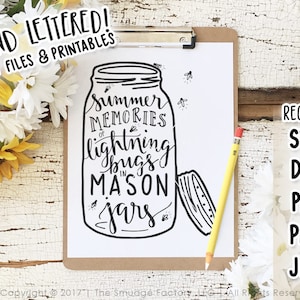 ND LETTERED!
FILES & PRINTABLES
summer
MEMORIES
of
lightning
bugs
IN
MASON
jars
REC
S
D
P
P
J
Copyright © 2017 | The Smudge Factory, LLC | All Rights Reserved